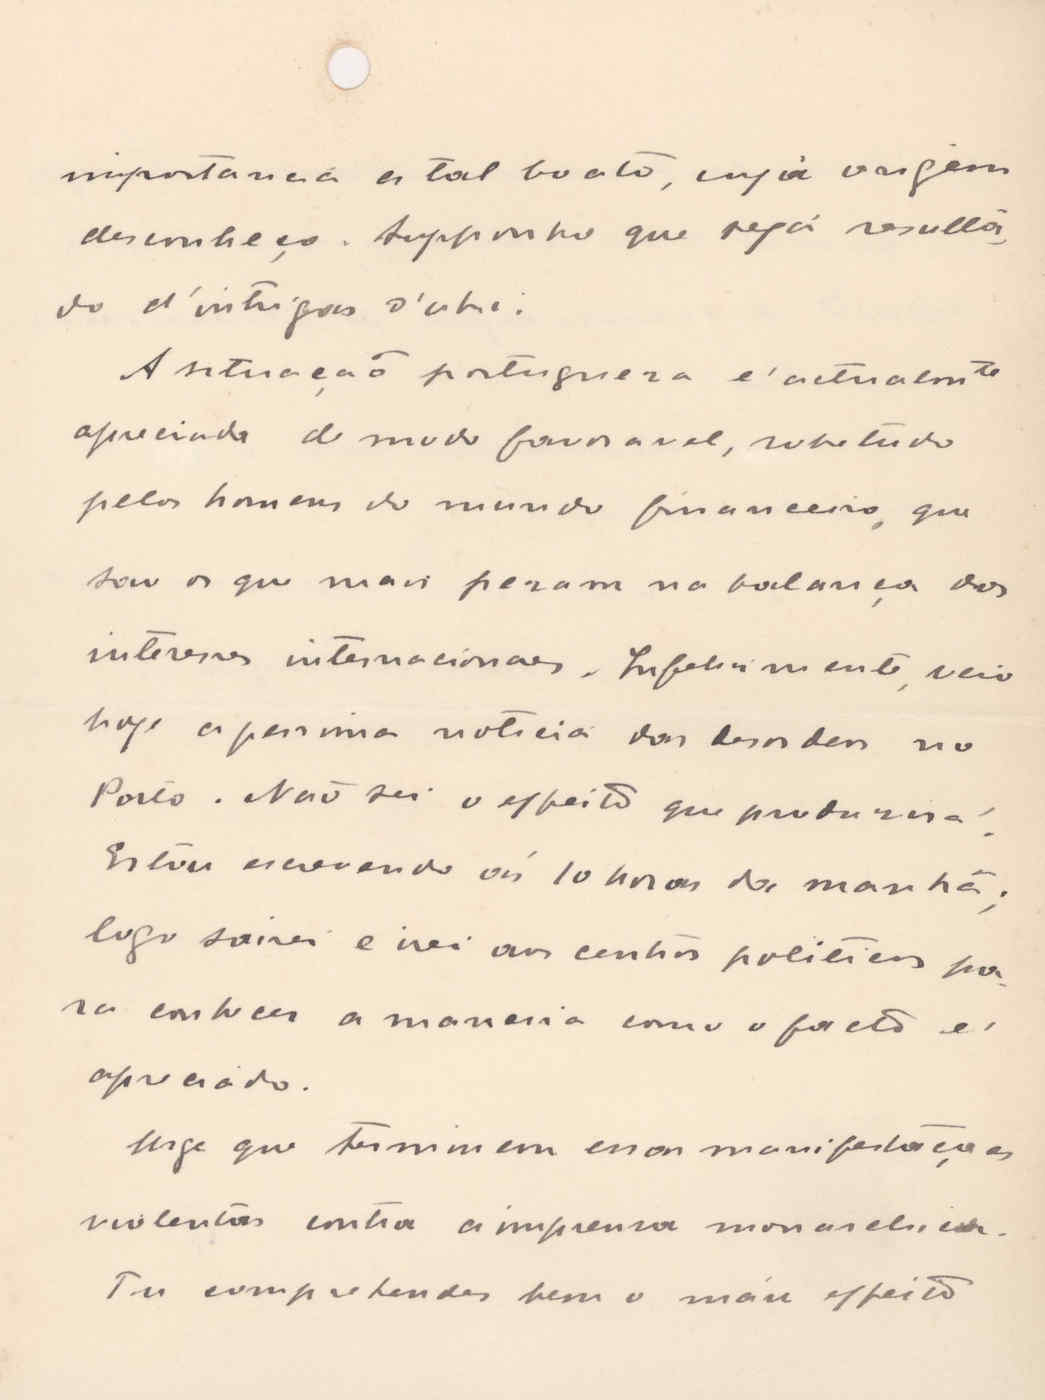 importancia a tal boato, cuja origem
desconheço. Supponho que seja resulta-
do d'intrigas d'ahi.
A situação portugueza é actualmte
apreciada de modo favoravel, sobretudo
pelos homens do mundo financeiro, que
são os que mais pezam na balança dos
interesses internacionaes. Infelizmente, veio
hoje a pessima noticia das desordens no
Porto. Não sei o effeito que produzirá.
Estou escrevendo ás 10 horas da manhã;
logo sairei e irei aos centros politicos pa-
ra conhecer a maneira como o facto é
apreciado.
Urge que terminem essas manifestações
violentas contra a imprensa monarchica.
Tu comprehendes bem o máu effeito